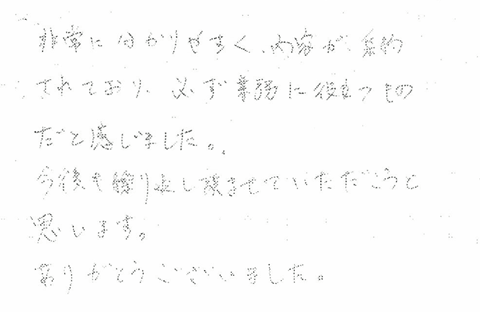 非常に分かりやすく、内容が集約
されており、必ず業務に役立つもの
だと感じました。
今後も繰り返し読ませていただこうと
思います。
ありがとうございました。